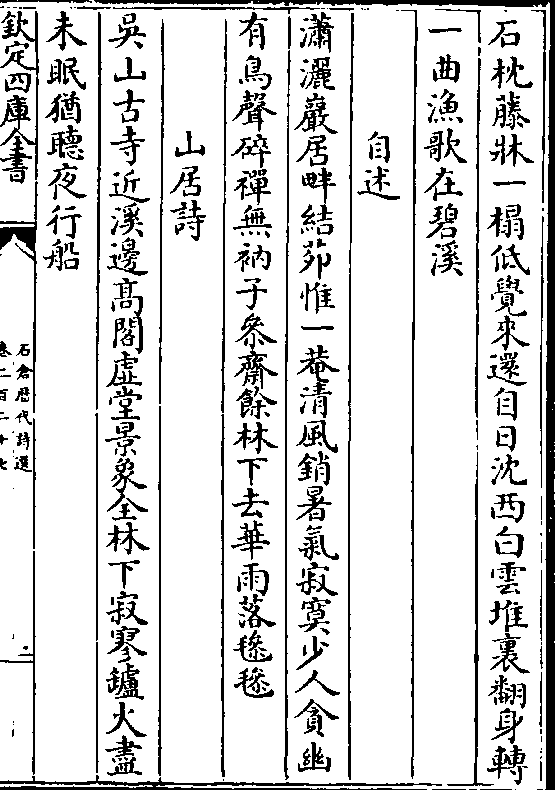 石枕藤牀一榻低覺來還自日沈西白雲堆裏翻身轉
一曲漁歌在碧溪
自述
瀟灑巖居畔結茆惟一菴清風銷暑氣寂寞少人貪幽
有鳥聲碎禪無衲子叅齋餘林下去華雨落毿毿
山居詩
吳山古寺近溪邊髙閣虚堂景象全林下寂寥鑪火盡
未眠猶聽夜行船
欽定四庫全書
石倉歴代詩選
卷二百二十七